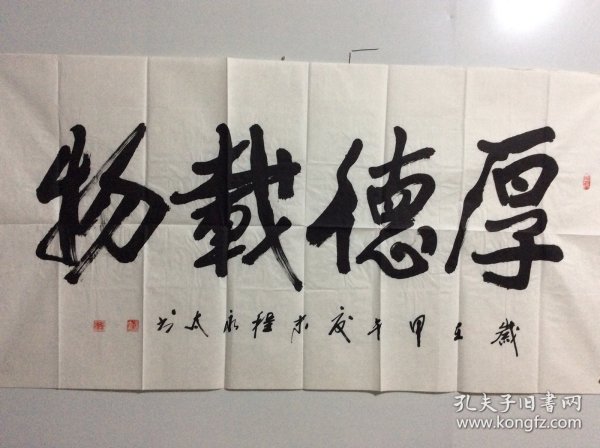 厚德载物
岁在甲午夏末程永太书
孔夫子旧书网
www.kongfz.com